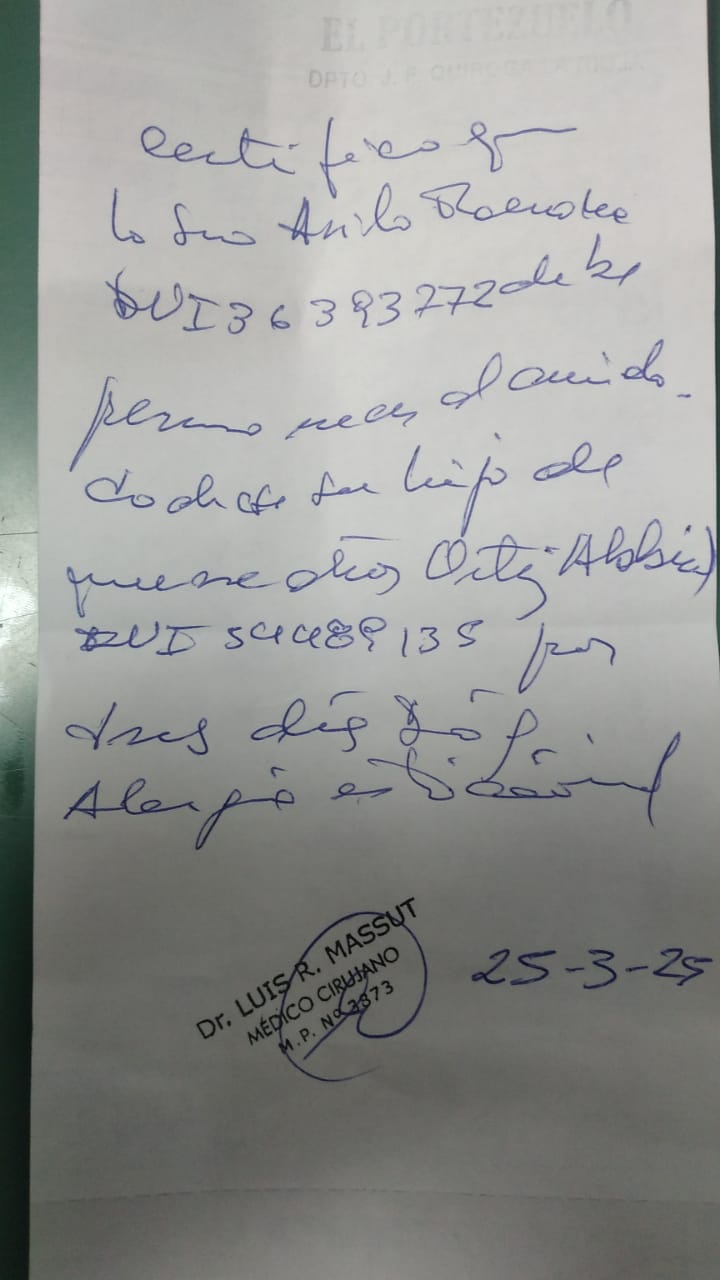 EL PORTEZUELO
DPTO J. F. QUIROGA LA RIOJA
Certifico que
la Sra
DNI 36393272 debe
permanecer al cuida-
do de su hijo de
Ortiz
DNI 54489135 por
tres días Dº
Alergia estacional
Dr. LUIS R. MASSUT
MÉDICO CIRUJANO
M.P. Nº 3373
25-3-25